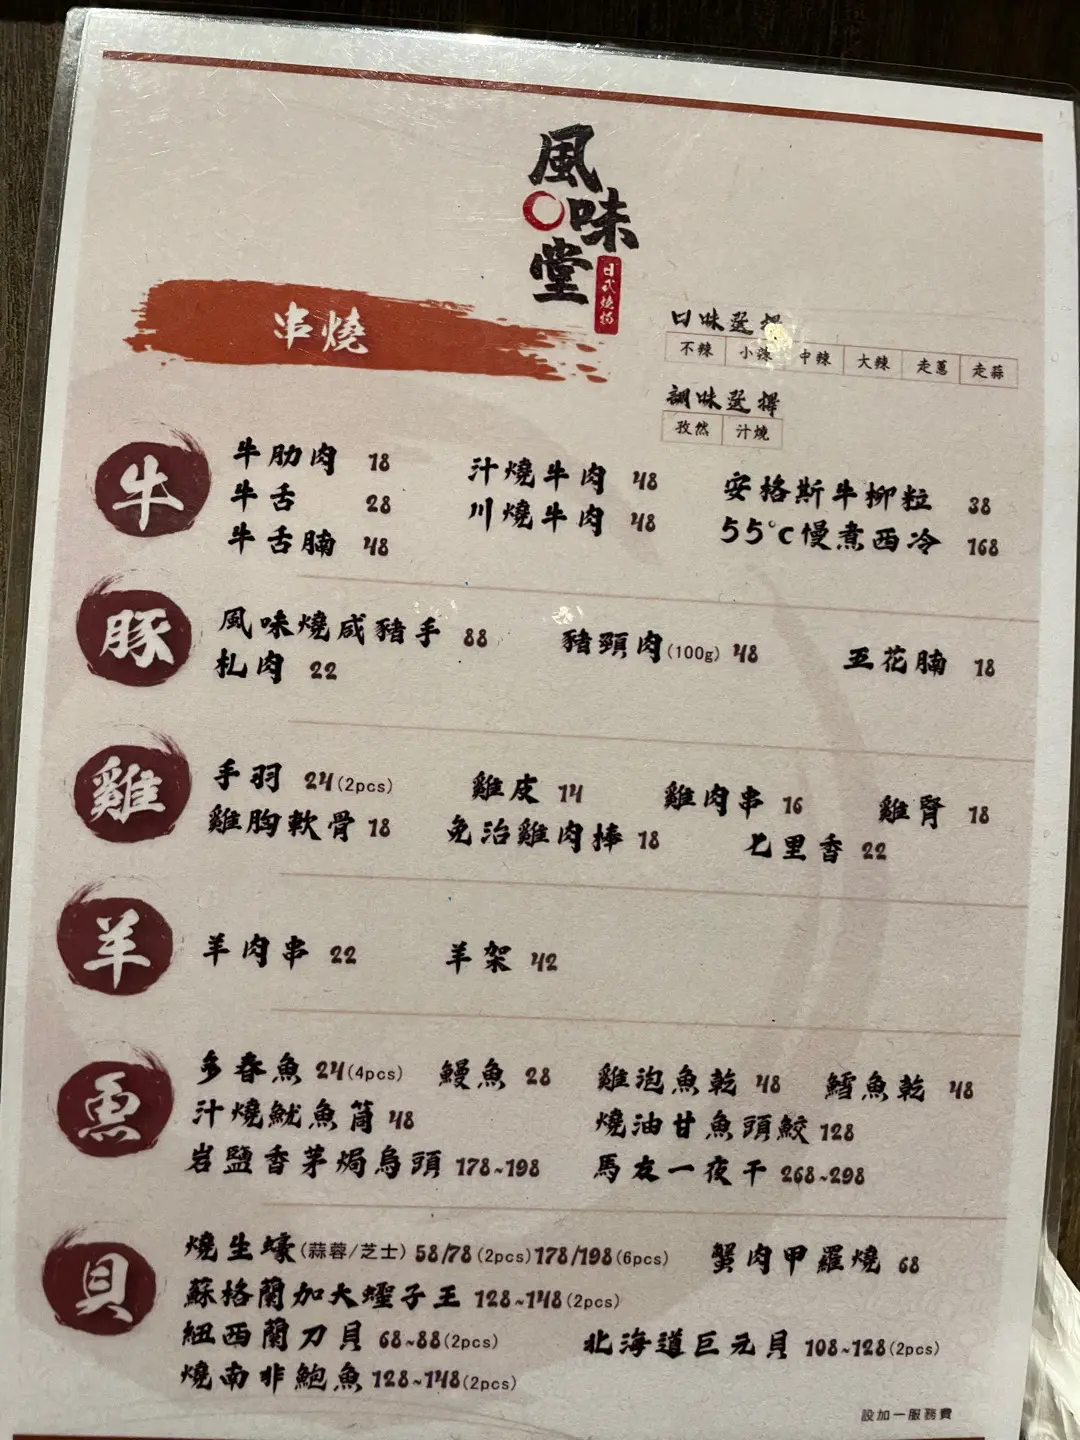 風味堂
日式燒物
串燒
口味選擇
不辣 小辣 中辣 大辣 走蔥 走蒜
調味選擇
孜然 汁燒
牛
牛肋肉 18 汁燒牛肉 48 安格斯牛柳粒 38
牛舌 28 川燒牛肉 48 55°C慢煮西冷 168
牛舌腩 48
豚
風味燒咸豬手 88 豬頸肉(100g) 48 五花腩 18
札肉 22
雞
手羽 24(2pcs) 雞皮 14 雞肉串 16 雞腎 18
雞胸軟骨 18 免治雞肉捧 18 七里香 22
羊
羊肉串 22 羊架 42
魚
多春魚 24(4pcs) 鰻魚 28 雞泡魚乾 48 鱈魚乾 48
汁燒魷魚筒 48 燒油甘魚頭鮫 128
岩鹽香茅焗烏頭 178~198 馬友一夜干 268~298
貝
燒生蠔(蒜蓉/芝士) 58/78(2pcs)178/198(6pcs) 蟹肉甲羅燒 68
蘇格蘭加大蟶子王 128~148(2pcs)
紐西蘭刀貝 68~88(2pcs) 北海道巨元貝 108~128(2pcs)
燒南非鮑魚 128~148(2pcs)
設加一服務費